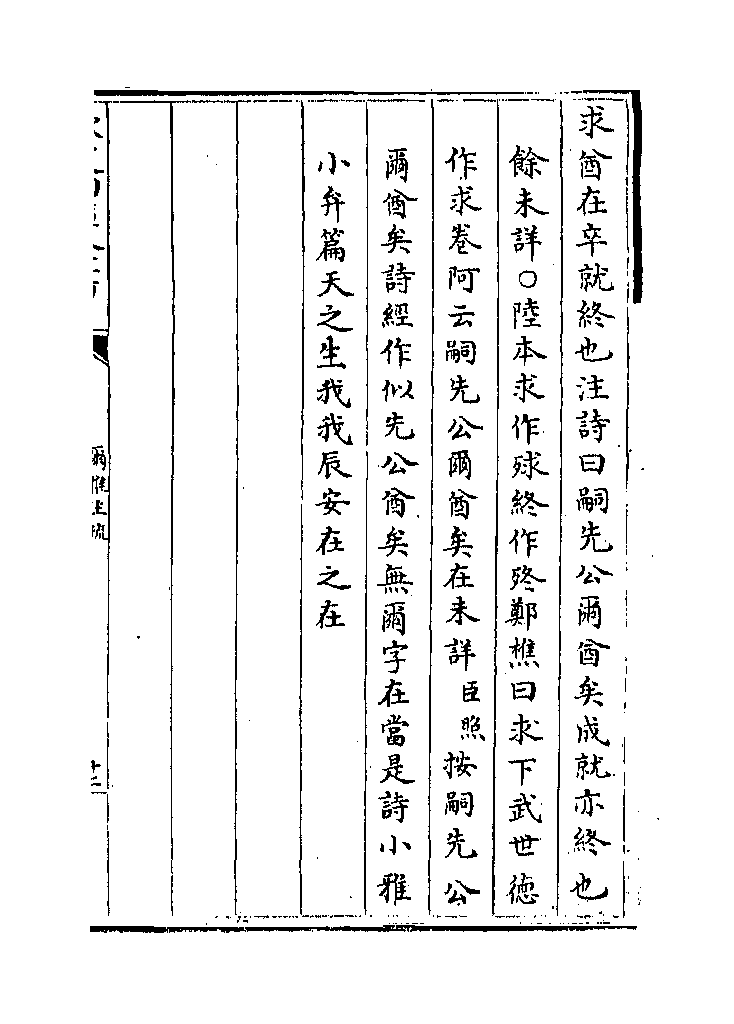 求酋在卒就終也注詩曰嗣先公爾酋矣成就亦終也
餘未詳○陸本求作殏終作㱡鄭樵曰求下武世德
作求卷阿云嗣先公爾酋矣在未詳臣照按嗣先公
爾酋矣詩經作似先公酋矣無爾字在當是詩小雅
小弁篇天之生我我辰安在之在
爾雅注疏